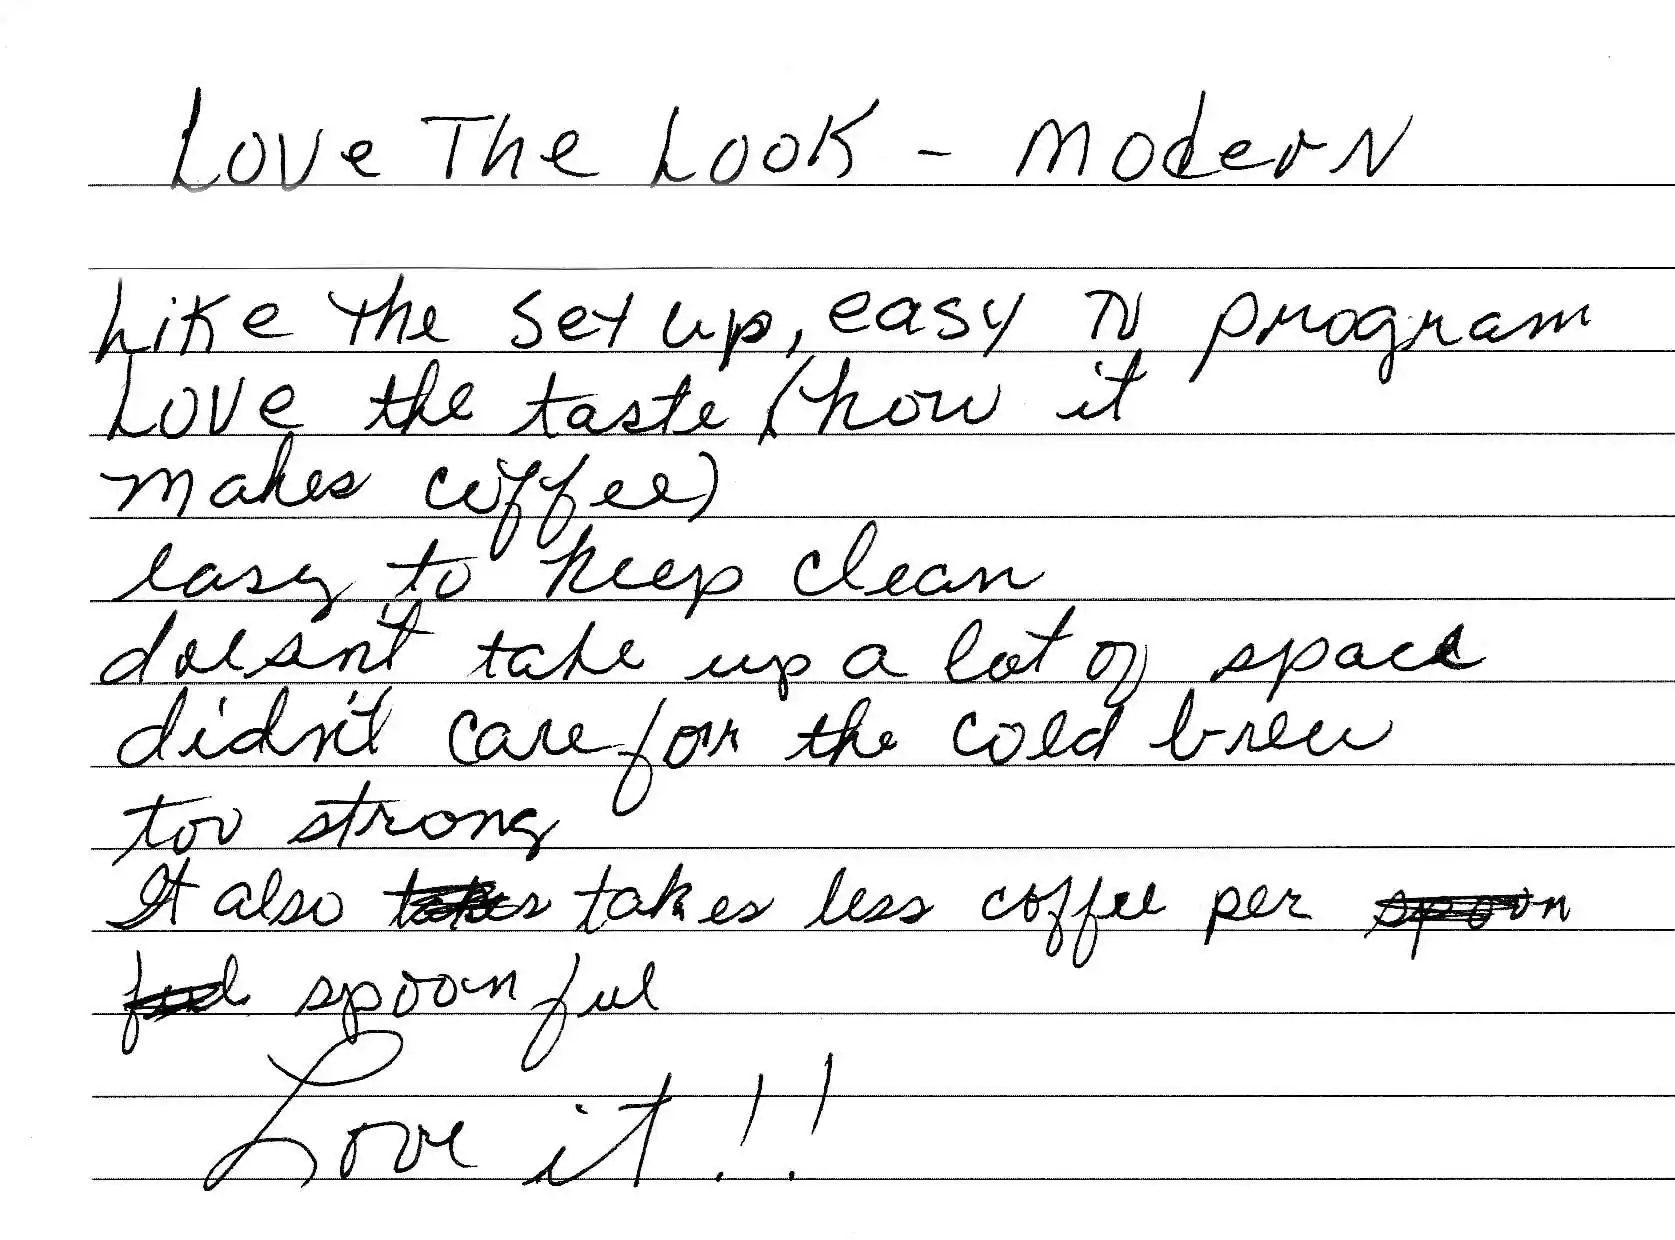 Love The Look - Modern
Like the set up, easy to program
Love the taste (how it
makes coffee)
easy to keep clean
doesn't take up a lot of space
didn't care for the cold brew
too strong
It also takes takes less coffee per spoon
ful spoonful
Love it!!